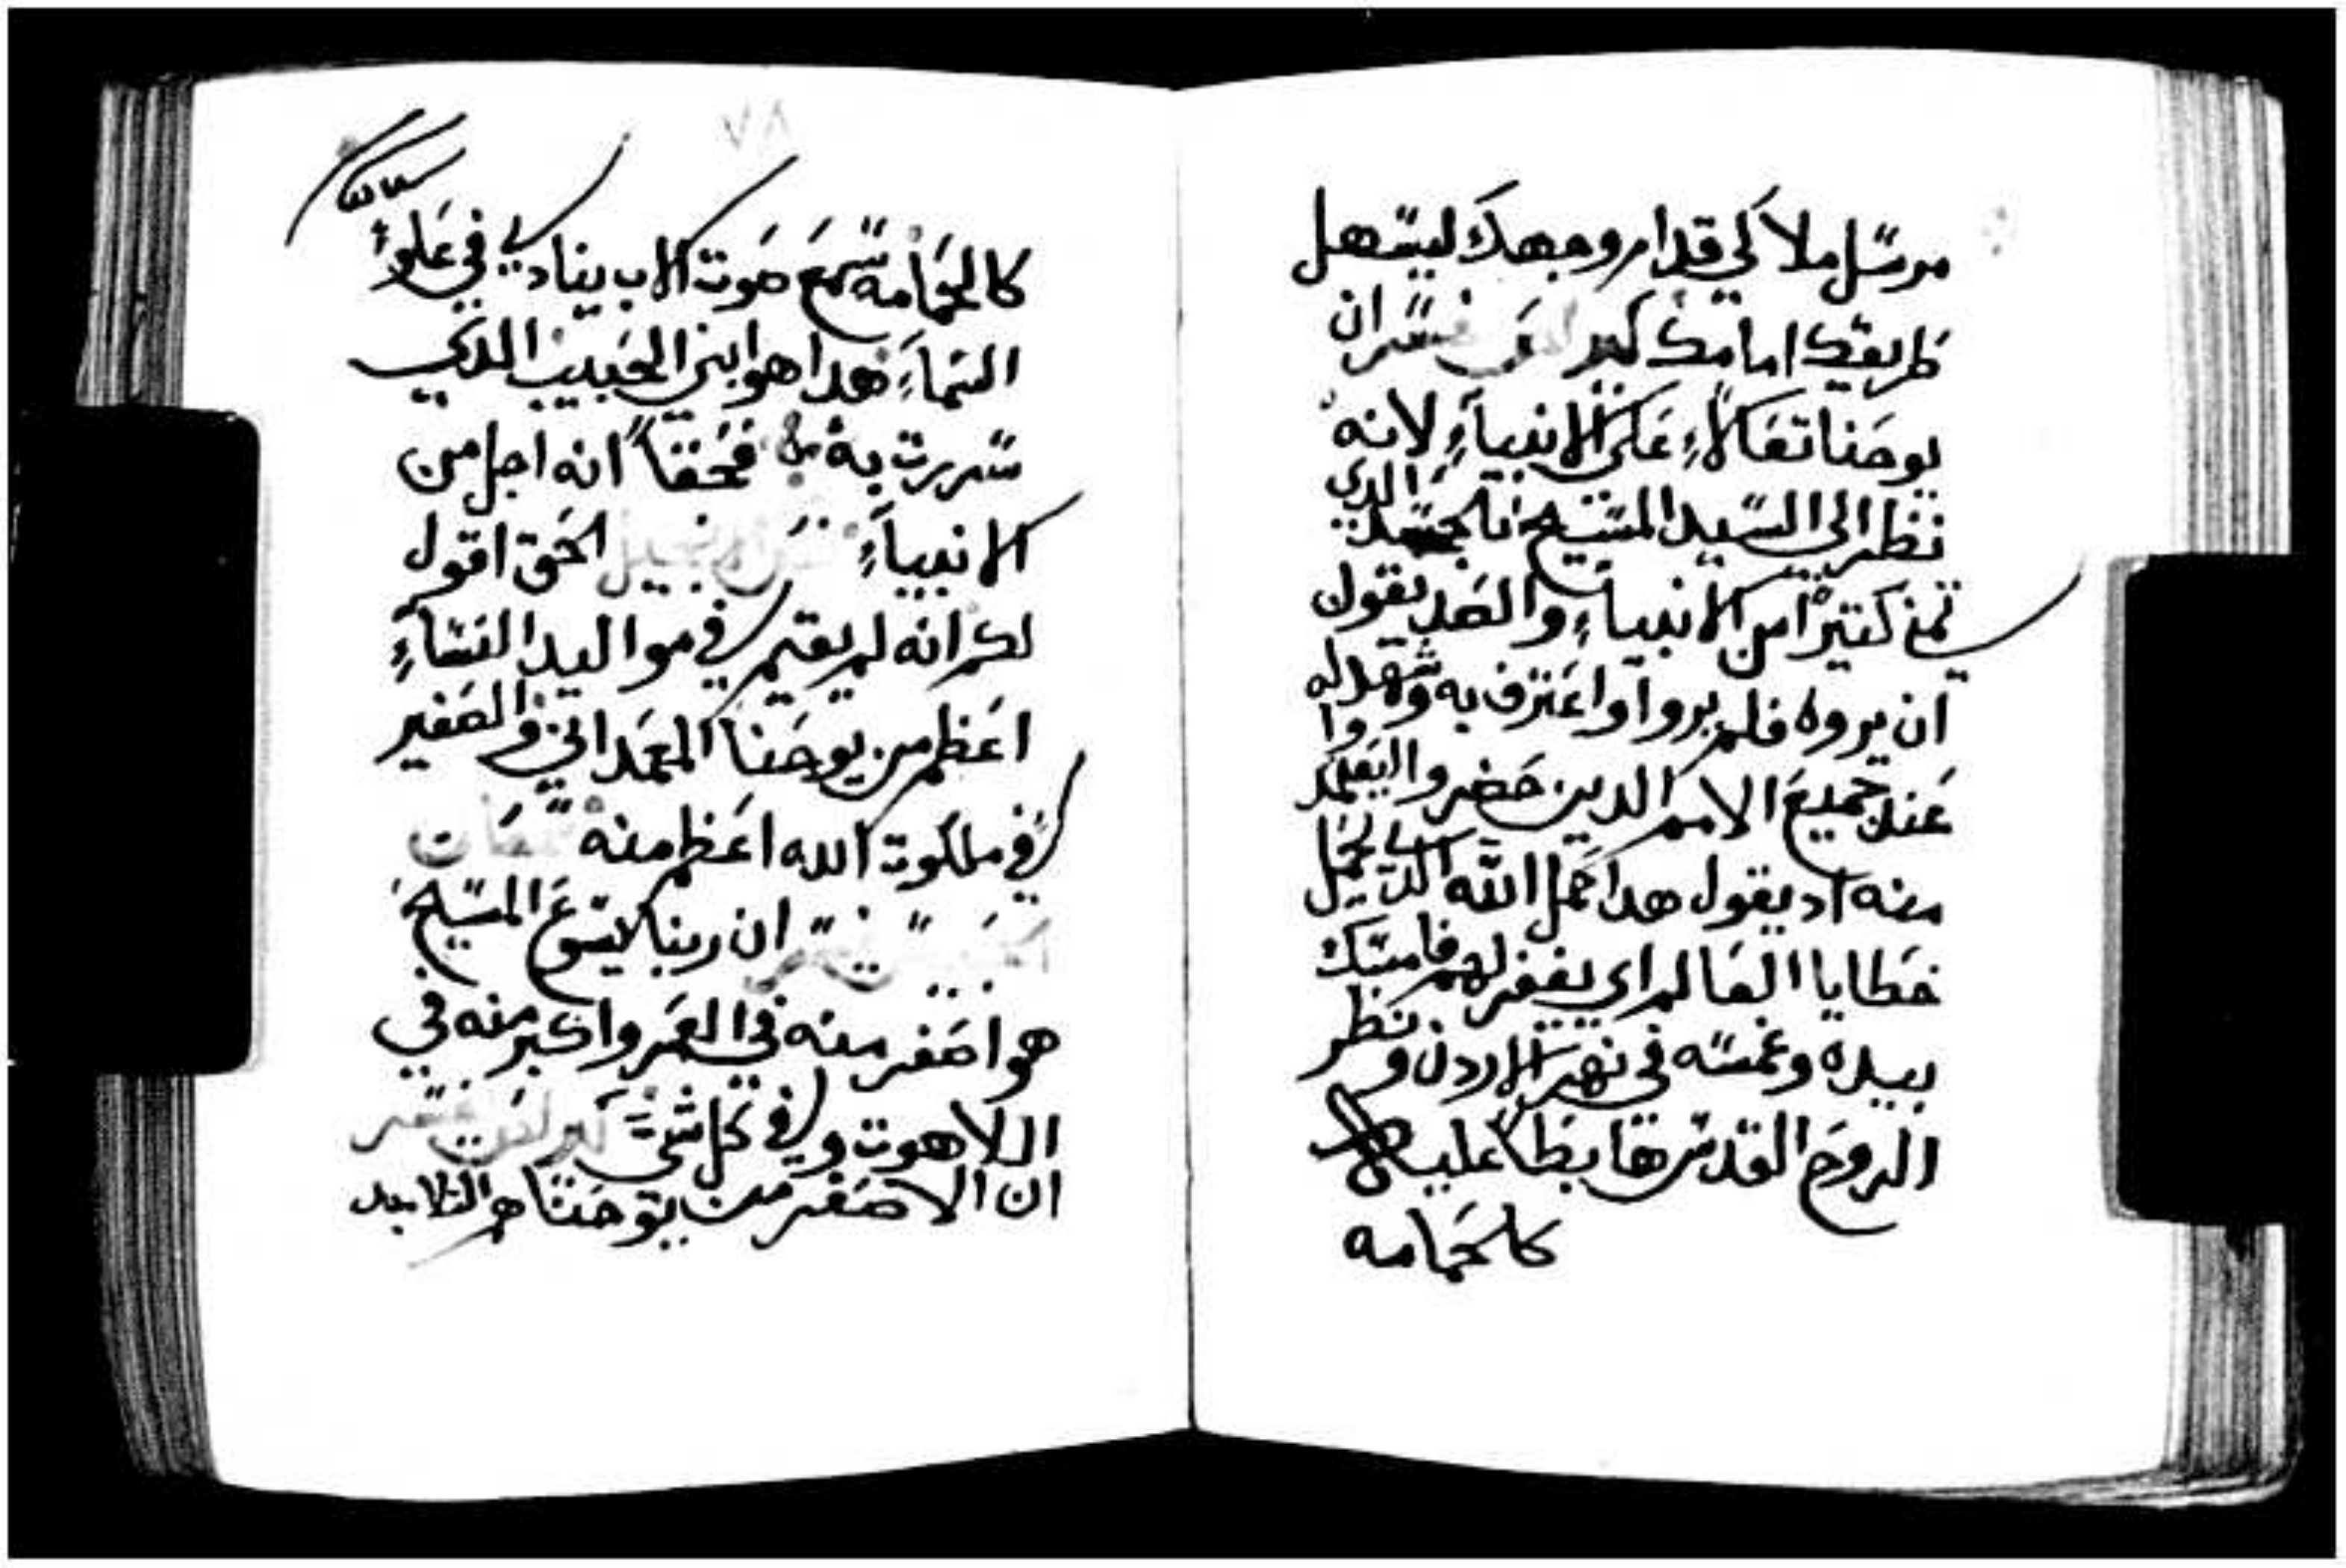 مرسل ملاكي قدام وجهك ليسهل
طريقك امامك كيرلس يفسر ان
يوحنا تعالاء على الانبياء لانه
نظر الي السيد المسيح بالجسد الدي
تمني كتيراً من الانبياء والصديقون
ان يروه فلم يروا واعترف به وشهد له
عند جميع الامم الدين حضروا ليعتمدوا
منه اد يقول هدا حمل الله الدي يحمل
خطايا العالم اي يغفر لهم فامسك
بيده وغمسه في نهر الاردن ونظر
الروح القدس هابطاً عليه
كالحمامه
٧٨
كالحمامه سمع صوت الاب ينادي في علو
السماء هدا هو ابني الحبيب الدي
سررت به فحقاً انه اجل من
الانبياء نص الانجيل الحق اقول
لكم انه لم يقم في مواليد النساء
اعظم من يوحنا المعمداني والصغير
في ملكوت الله اعظم منه
يفسر ان ربنا يسوع المسيح
هو اصغر منه في العمر واكبر منه في
اللاهوت وفي كل شي كيرلس يفسر
ان الاصغر من يوحنا هو التلاميد